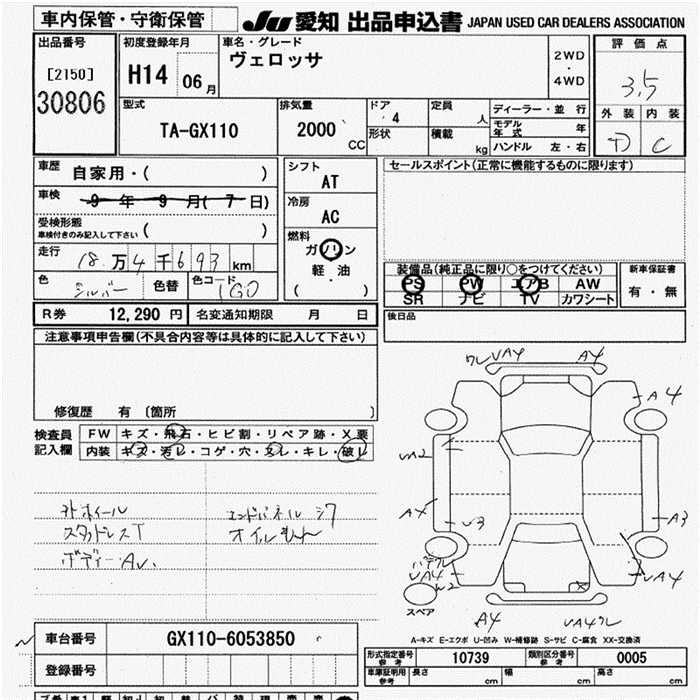 車内保管・守衛保管
JU 愛知 出品申込書 JAPAN USED CAR DEALERS ASSOCIATION
出品番号
[2150]
30806
初度登録年月
H14 06月
車名・グレード
ヴェロッサ
2WD
・
4WD
評価点
3.5
外装 内装
D C
型式
TA-GX110
排気量
2000 CC
ドア
4
形状
定員
人
積載
kg
ディーラー・並行
モデル年式 年
ハンドル 左・右
車歴
自家用・( )
車検
9年9月(7日)
受検形態
車検付きのみ記入して下さい ( )
走行
18万4千693km
色
シルバー
色替
色コード
1G0
シフト
AT
冷房
AC
燃料
ガソリン
軽・油
( ・ )
セールスポイント(正常に機能するものに限ります)
装備品(純正品に限り○をつけてください)
PS PW エアB AW
SR ナビ TV カワシート
新車保証書
有・無
後日品
R券 12,290円 名変通知期限 月 日
注意事項申告欄(不具合内容等は具体的に記入して下さい)
修復歴 有 〔箇所 〕
検査員記入欄
FW キズ・飛石・ヒビ割・リペア跡・X要
内装 キズ・汚レ・コゲ・穴・スレ・キレ・破レ
外ホイール
スタッドレスT
ボディーAU.
エンドパネルシワ
オイル
ワレUAY A4
A4
UA2
A4
U3
A3
UA4
W2
UA4
A4
UA4ワレ
スペア
A-キズ E-エクボ U-凹み W-補修跡 S-サビ C-腐食 XX-交換済
車台番号
GX110-6053850
登録番号
形式指定番号
参考
10739
類別区分番号
参考
0005
車庫証明用
参考
長さ cm 幅 cm 高さ cm